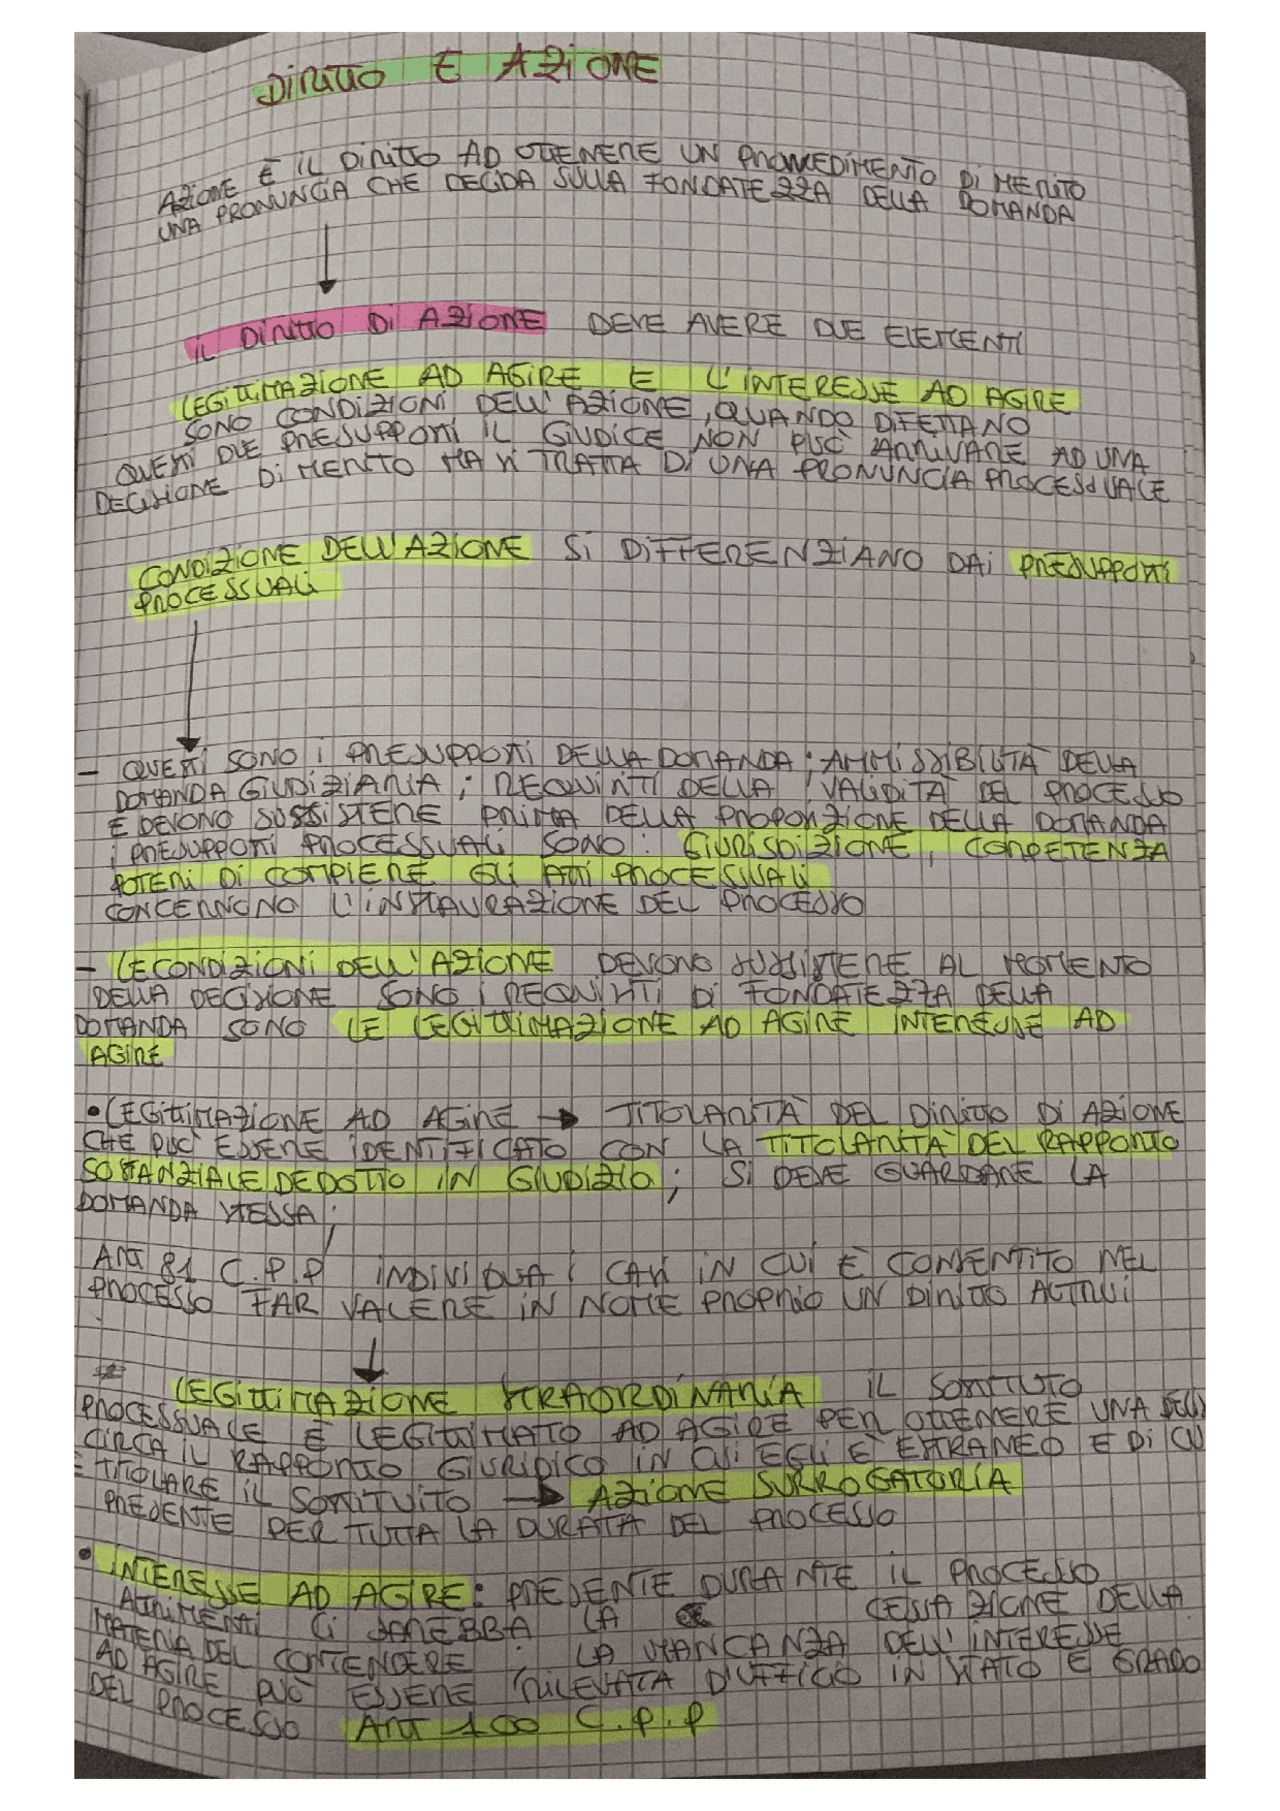 DIRITTO E AZIONE
AZIONE È IL DIRITTO AD OTTENERE UN PROVVEDIMENTO DI MERITO
UNA PRONUNCIA CHE DECIDA SULLA FONDATEZZA DELLA DOMANDA
IL DIRITTO DI AZIONE DEVE AVERE DUE ELEMENTI
LEGITTIMAZIONE AD AGIRE E L'INTERESSE AD AGIRE
SONO CONDIZIONI DELL'AZIONE, QUANDO DIFETTANO
QUESTI DUE PRESUPPOSTI IL GIUDICE NON PUÒ ARRIVARE AD UNA
DECISIONE DI MERITO MA SI TRATTA DI UNA PRONUNCIA PROCESSUALE
CONDIZIONE DELL'AZIONE SI DIFFERENZIANO DAI PRESUPPOSTI
PROCESSUALI
- QUESTI SONO I PRESUPPOSTI DELLA DOMANDA; AMMISSIBILITÀ DELLA
DOMANDA GIUDIZIARIA; REQUISITI DELLA VALIDITÀ DEL PROCESSO
E DEVONO SUSSISTERE PRIMA DELLA PROPOSIZIONE DELLA DOMANDA
I PRESUPPOSTI PROCESSUALI SONO: GIURISDIZIONE, COMPETENZA
POTERI DI COMPIERE GLI ATTI PROCESSUALI
CONCERNONO L'INSTAURAZIONE DEL PROCESSO
- LE CONDIZIONI DELL'AZIONE DEVONO SUSSISTERE AL MOMENTO
DELLA DECISIONE SONO I REQUISITI DI FONDATEZZA DELLA
DOMANDA SONO LE LEGITTIMAZIONE AD AGIRE INTERESSE AD
AGIRE
• LEGITTIMAZIONE AD AGIRE → TITOLARITÀ DEL DIRITTO DI AZIONE
CHE PUÒ ESSERE IDENTIFICATO CON LA TITOLARITÀ DEL RAPPORTO
SOSTANZIALE DEDOTTO IN GIUDIZIO; SI DEVE GUARDARE LA
DOMANDA STESSA;
ART 81 C.P.P INDIVIDUA I CASI IN CUI È CONSENTITO NEL
PROCESSO FAR VALERE IN NOME PROPRIO UN DIRITTO ALTRUI
LEGITTIMAZIONE STRAORDINARIA IL SOSTITUTO
PROCESSUALE È LEGITTIMATO AD AGIRE PER OTTENERE UNA
CIRCA IL RAPPORTO GIURIDICO IN CUI EGLI È ESTRANEO E DI CU
È TITOLARE IL SOSTITUITO → AZIONE SURROGATORIA
PRESENTE PER TUTTA LA DURATA DEL PROCESSO
• INTERESSE AD AGIRE: PRESENTE DURANTE IL PROCESSO
ALTRIMENTI CI SAREBBA LA CESSAZIONE DELLA
MATERIA DEL CONTENDERE LA MANCANZA DELL'INTERESSE
AD AGIRE PUÒ ESSERE RILEVATA D'UFFICIO IN STATO E GRADO
DEL PROCESSO ART 100 C.P.P